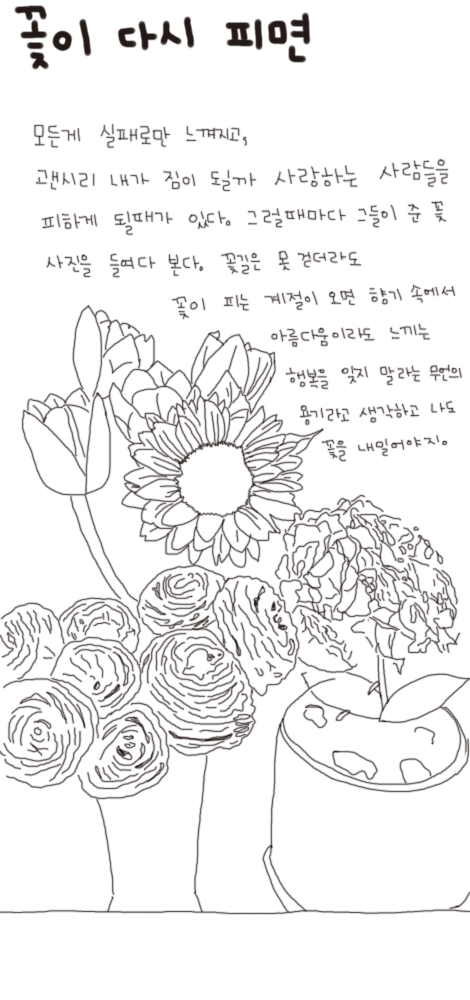 꽃이 다시 피면
모든게 실패로만 느껴지고,
괜시리 내가 짐이 될까 사랑하는 사람들을
피하게 될때가 있다. 그럴때마다 그들이 준 꽃
사진을 들여다 본다. 꽃길은 못 걷더라도
꽃이 피는 계절이 오면 향기 속에서
아름다움이라도 느끼는
행복을 잊지 말라는 무언의
용기라고 생각하고 나도
꽃을 내밀어야지.